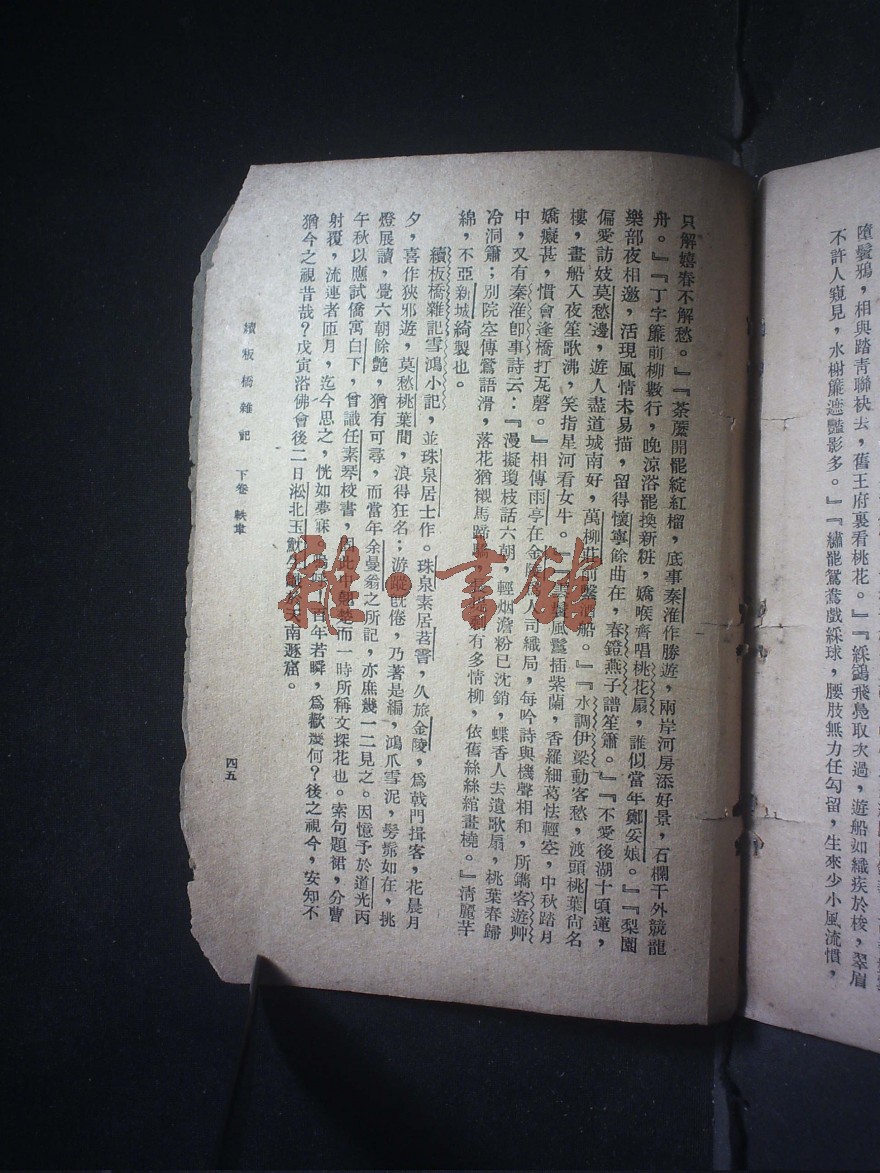 墮鬢鴉，相與踏青聯袂去，舊王府裏看桃花。』『綵鷁飛鳧取次過，遊船如織疾於梭，翠眉
不許人窺見，水榭簾遮豔影多。』『繡罷鴛鴦戲綵球，腰肢無力任勾留，生來少小風流慣，
只解嬉春不解愁。』『荼蘼開罷綻紅榴，底事秦淮作勝遊，兩岸河房添好景，石欄干外競龍
舟。』『丁字簾前柳數行，晚涼浴罷換新粧，嬌喉齊唱桃花扇，誰似當年鄭妥娘。』『梨園
樂部夜相邀，活現風情未易描，留得懷寧餘曲在，春鐙燕子譜笙簫。』『不愛後湖十頃蓮，
偏愛訪妓莫愁邊，遊人盡道城南好，萬柳莊前繫船。』『水調伊梁動客愁，渡頭桃葉尙名
樓，畫船入夜笙歌沸，笑指星河看女牛。』『風鬟插紫蘭，香羅細葛怯輕空，中秋踏月
嬌癡甚，慣會逢橋打瓦磬。』相傳雨亭在金陵人司織局，每吟詩與機聲相和，所鐫客遊艸
中，又有秦淮卽事詩云：『漫擬瓊枝話六朝，輕烟澹粉已沈銷，蝶香人去遺歌扇，桃葉春歸
冷洞簫；別院空傳鶯語滑，落花猶襯馬蹄，有多情柳，依舊絲絲綰畫橈。』淸麗芊
綿，不亞新城綺製也。
續板橋雜記雪鴻小記，並珠泉居士作。珠泉素居苕霅，久旅金陵，爲戟門揖客，花晨月
夕，喜作狹邪遊，莫愁桃葉間，浪得狂名；游蹤旣倦，乃著是編，鴻爪雪泥，髣髴如在，挑
燈展讀，覺六朝餘艶，猶有可尋，而當年余曼翁之所記，亦庶幾一二見之。因憶予於道光丙
午秋以應試僑寓白下，曾識任素琴校書，此中翹楚而一時所稱文探花也。索句題裙，分曹
射覆，流連者匝月，迄今思之，恍如夢寐。百年若瞬，爲歡幾何？後之視今，安知不
猶今之視昔哉？戊寅浴佛會後二日淞北玉魫生識於天南遯窟。
續板橋雜記 下卷 軼事
四五
雜·書館